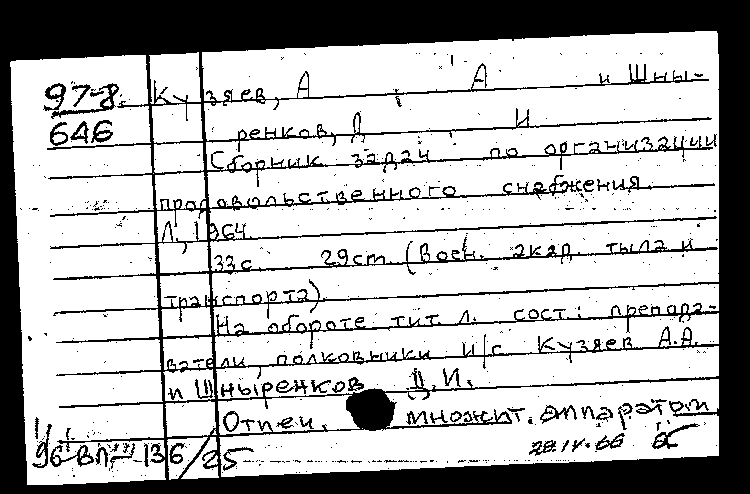 97-8. Кузяев, А ; А и Шны-
646 ренков, Д И
Сборник задач по организации
продовольственного снабжения.
Л., 1964.
33 с. 29 cm (Воен. акад. тыла и
транспорта).
На обороте тит. л. сост: препода-
ватели, полковники и/с Кузяев А.А.
и Шныренков Д.И.
Отпеч. множит. аппаратом.
136/25 28.IV.66